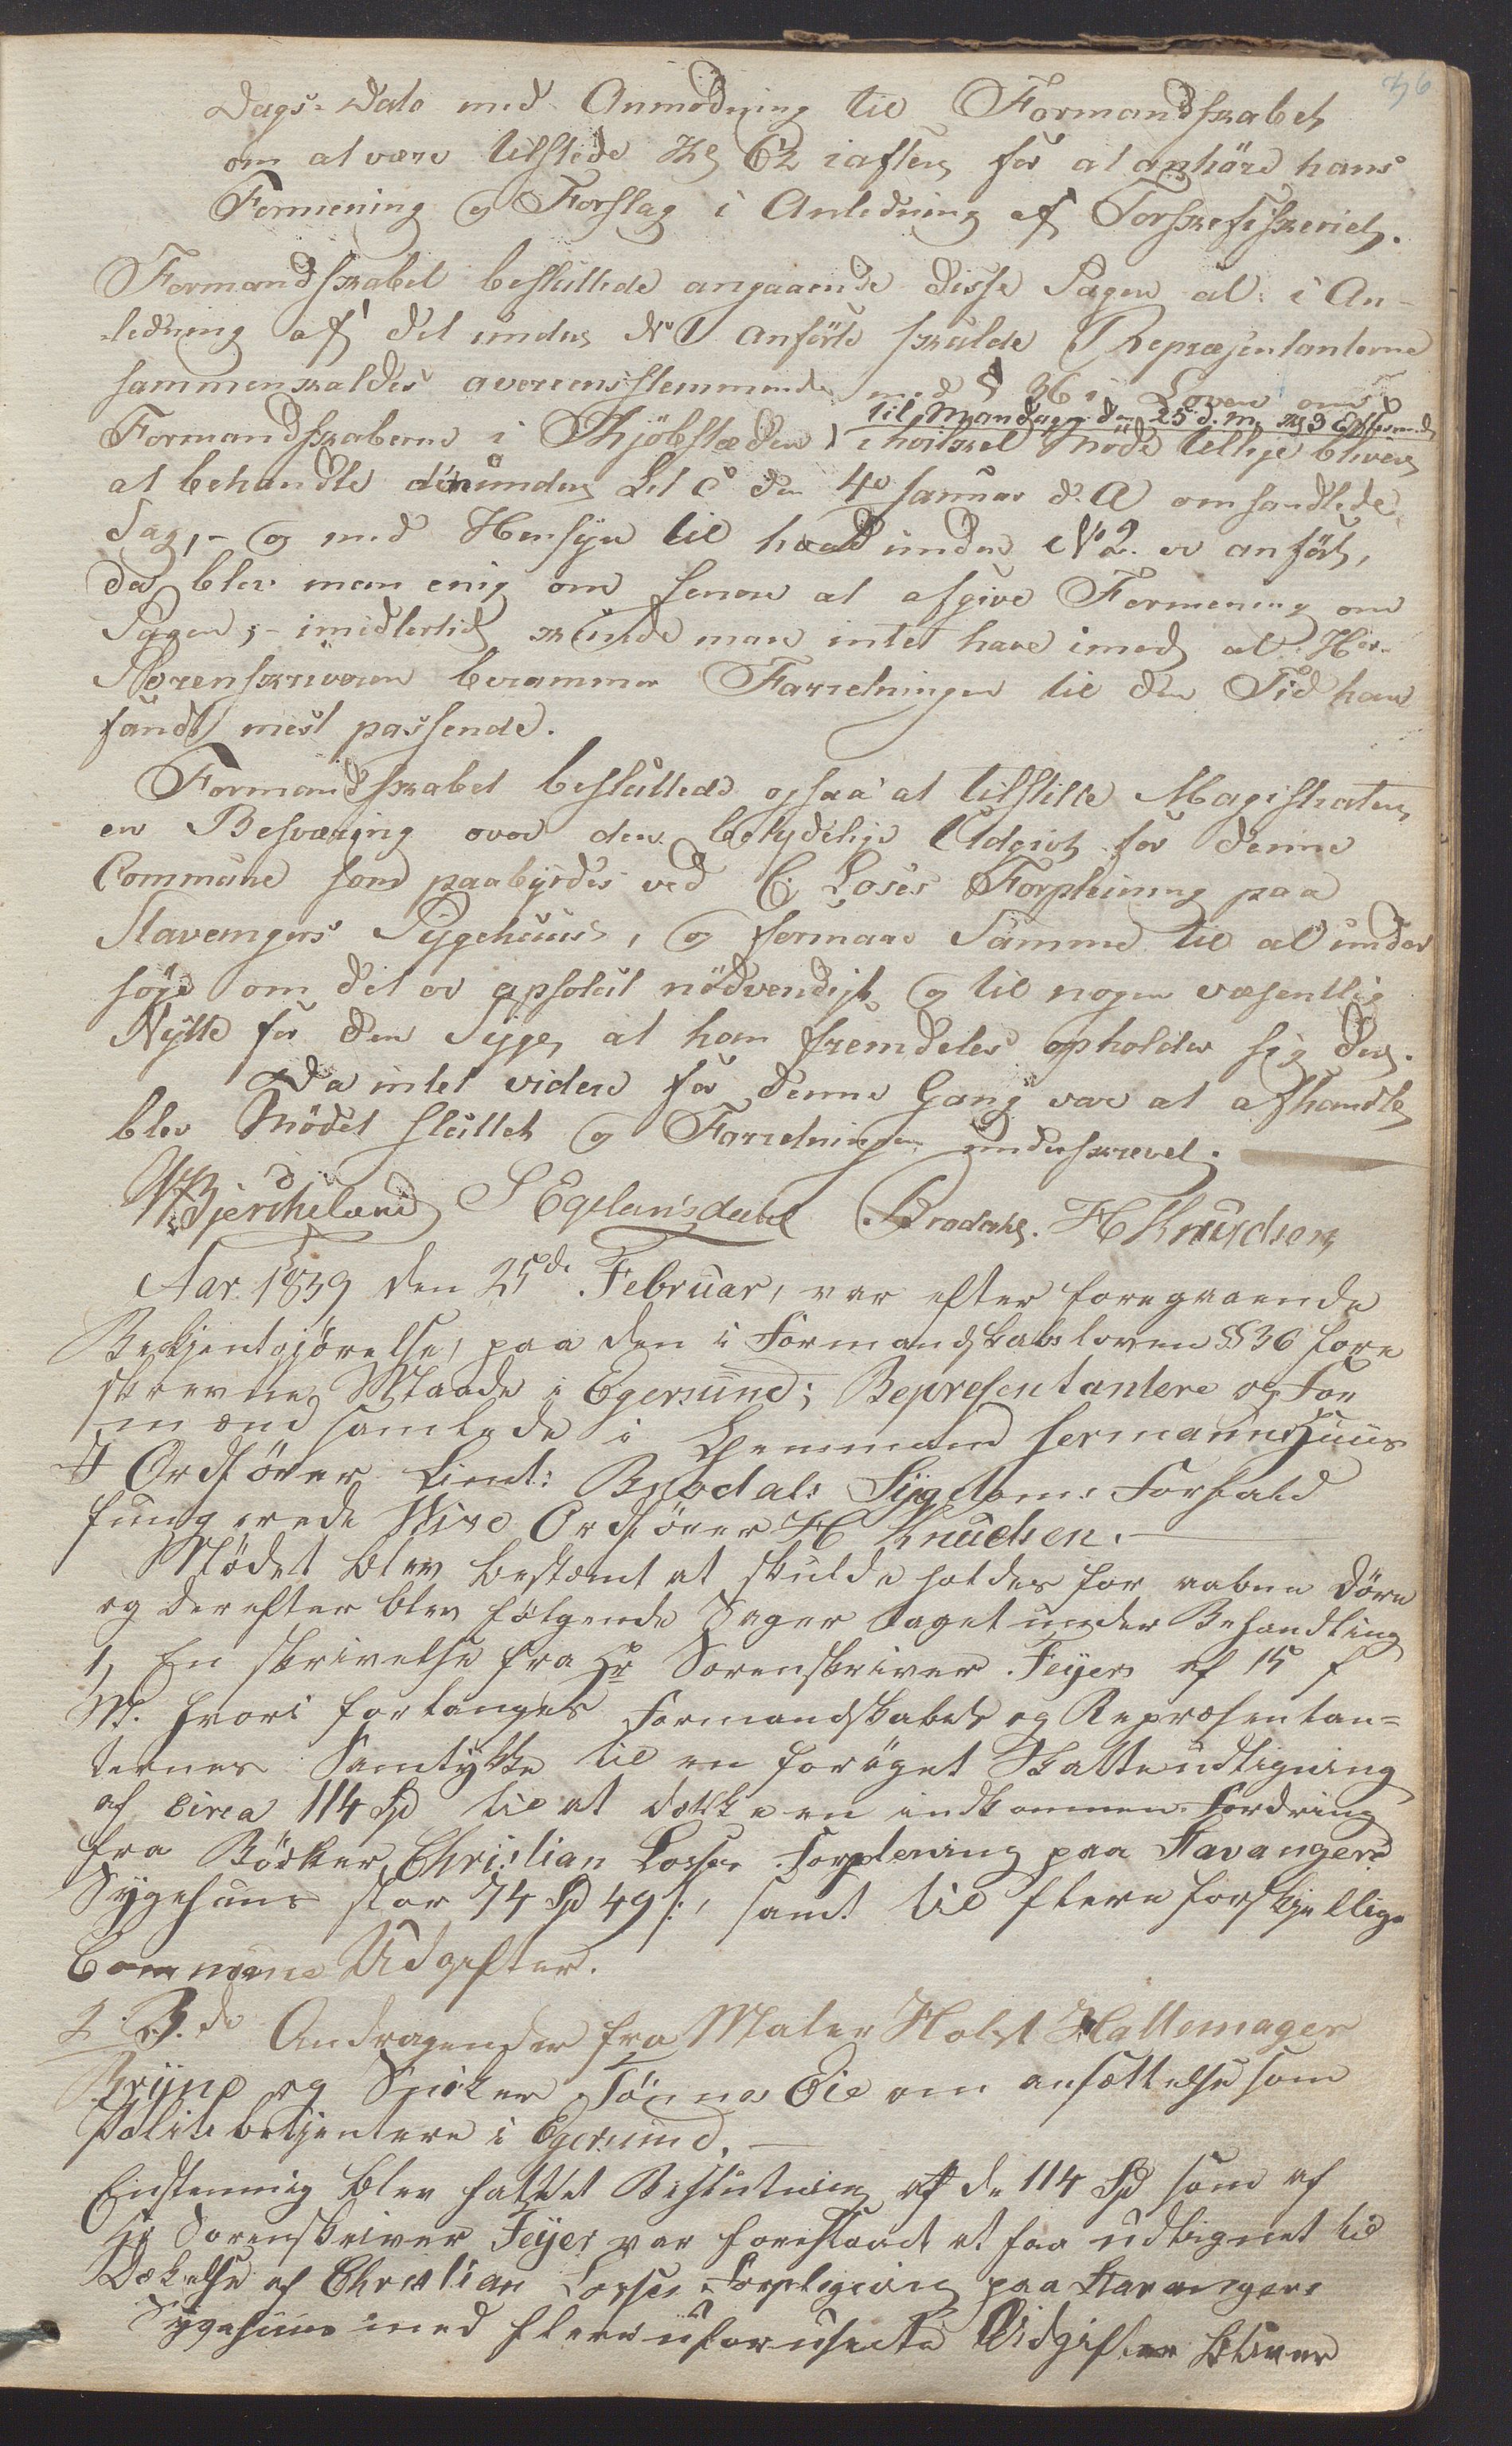 36
Dags Dato med Anmodning til Formandskabet
om at være tilstede Kl 6½ iaften for at anhöre hans
Formening og Forslag i Anledning af Torskefiskeriet.
Formandskabet besluttede angaaende disse Sager at: i An-
ledning af det under No 1 anförte skulde Repræsentanterne
sammenkaldes overeensstemmende med § 36 i Loven om
til Mandagen den 25 d. M. Kl 3 Efterm:
Formandskaberne i Kjöbstæden, i hvilket Möde tillige bliver
at behandle den under Lit C den 4de Januar d. A omhandlede
Sag, - og med Hensyn til hvad under No 2. er anfört,
da blev man enig om senere at afgive Formening om
Sagen; - imidlertid kunde man intet have imod at Hr.
Sorenskriveren berammer Forretningen til den Tid han
fandt mest passende.
Formandskabet besluttede ogsaa at tilstille Magistraten
en Besværing over den betydelige Udgivt for denne
Commune som paabyrdes ved C. Loses Forpleining paa
Stavengers Sygehuus, og formaae Samme til at under
söge om det er apsolut nödvendigt og til nogen væsentlig
Nytte for den Syge, at han fremdeles opholder sig der.
Da intet videre for denne Gang var at afhandle
blev Mödet sluttet og Forretningen underskrevet.
Bjerkeland S Egelandsdahl Brodahl. H Knudsen
Aar 1839 den 25de Februar, var efter foregaaende
Bekjentgjörelse, paa den i Formandskabsloven §§ 36 fore
skrevne Maade i Egersund; Representantere og For
mænd samlede i Lensmand Hermanns Huus
I Ordförer Lieut: Brodals Sygdoms Forfald
fungerede Vise Ordförer H Knudsen.
Mödet blev bestemt at skulde holdes for aabne Döre
og derefter blev fölgende Sager taget under Behandling
1, En skrivelse fra Hr Sorenskriver Feyer af 15 f
M. hvori forlanges Formandskabets og Repræsentan=
ternes Samtykke til en foröget Skatteudligning
af circa 114 Sp til at dække en indkommen Fordring
fra Bödker Christian Losses Forpleining paa Stavangers
Sygehuus stor 74 Sp 49 s:, samt til flere forskjellige
Commune Udgifter.
2. 3.de Andragender fra Maler Holst Hattemager
Bryne og Snedker Tönnes Eie om ansættelse som
Politibetjentere i Egersund.
Enstemmig blev fattet Beslutning at de 114 Sp som af
Hr Sorenskriver Feyer var foreslaaet at faa udlignet til
Dækelse af Christian Losses Forpleining paa Stavangers
Sygehuus med flere uforudseete Udgifter bliver